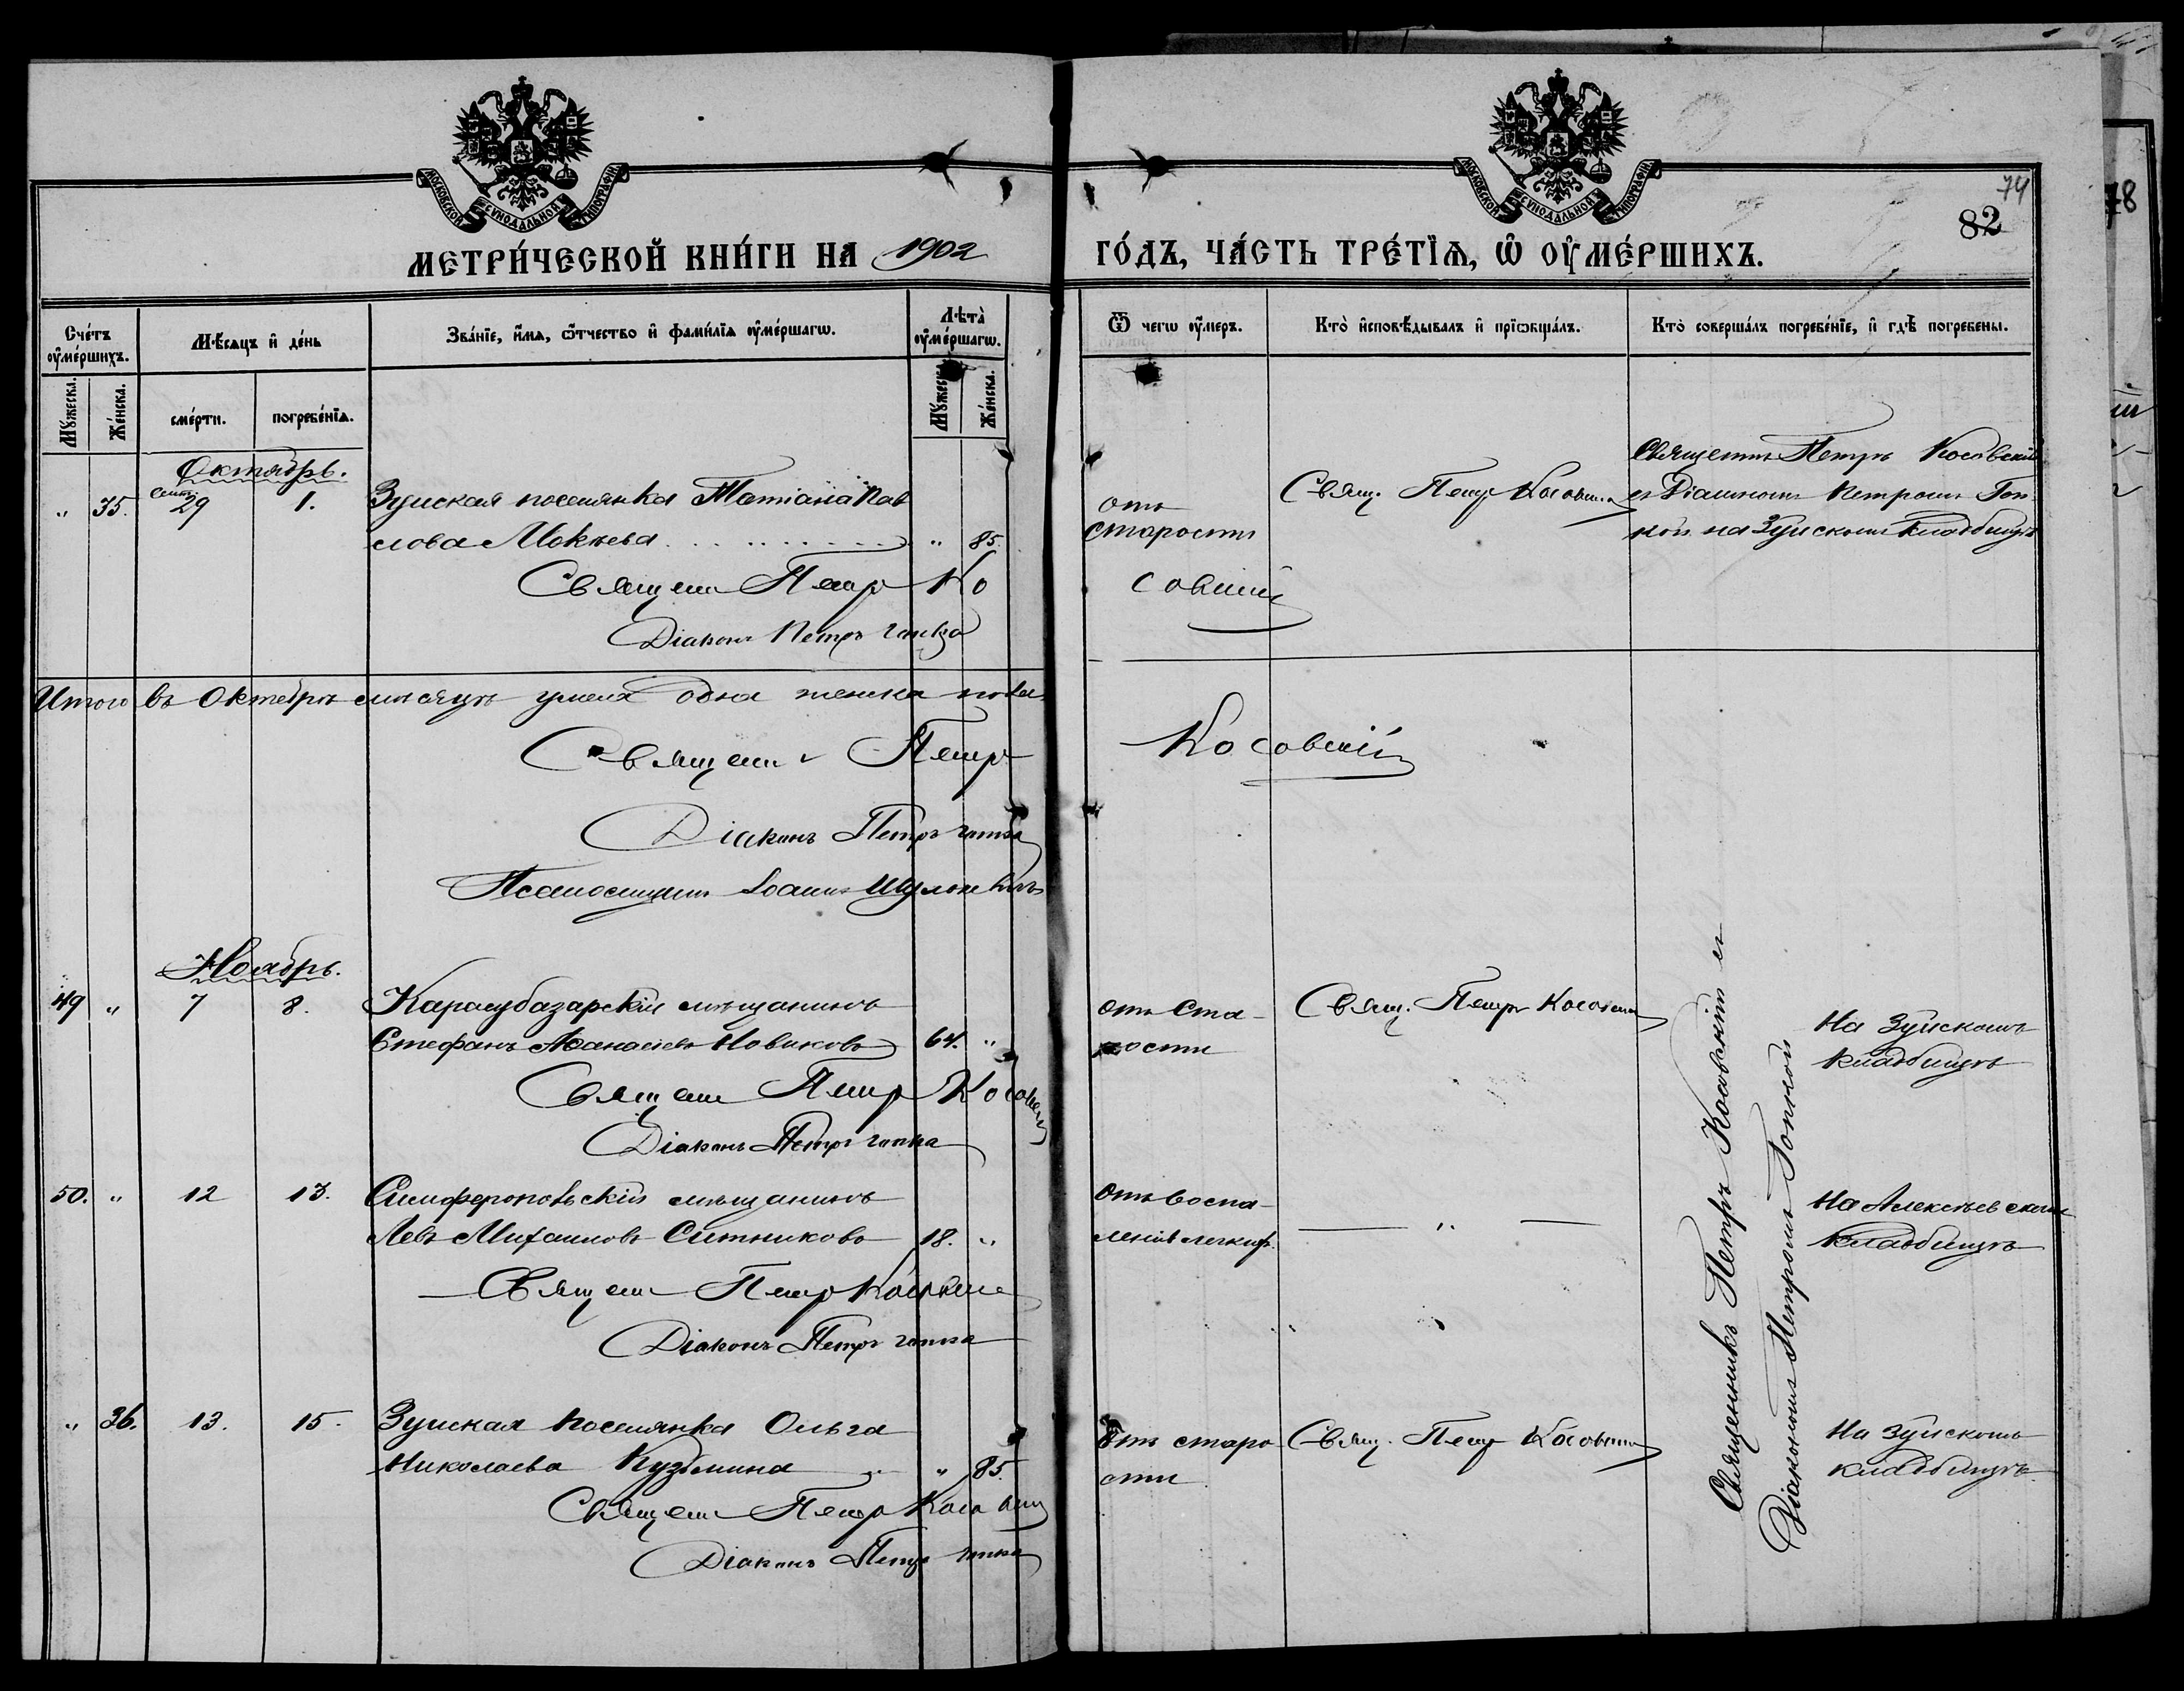 МОСКОВСКОЙ СУНОДАЛЬНОЙ ТИПОГРАФІИ
МОСКОВСКОЙ СУНОДАЛЬНОЙ ТИПОГРАФІИ
74
82
78
МЕТРИ́ЧЕСКОЙ КНИ́ГИ НА 1902 ГО́ДЪ, ЧА́СТЬ ТРЕ́ТІѦ, Ѡ҆ ОУ҆МЕ́РШИХЪ.
Сче́тъ оу҆ме́ршихъ.
Мѣ́сѧцъ и҆ де́нь
Зва́нїе, и҆́мѧ, ѻ҆́тчество и҆ фамі́лїѧ оу҆ме́ршагѡ.
Лѣта̀ оу҆ме́ршагѡ.
Ѿ чегѡ̀ оу҆́меръ.
Кто̀ и҆сповѣ́дывалъ и҆ прїѡбща́лъ.
Кто̀ соверша́лъ погребе́нїе, и҆ гдѣ̀ погребены.
Мꙋ́жеска.
Же́нска.
сме́рти.
погребе́нїѧ.
Мꙋ́жеска.
Же́нска.
Октябрь.
" 35. Сент. 29 1. Зуйская поселянка Татіана Пав
слова Мокѣева " 85.
отъ
старости
Свящ. Петръ Косовскій
Священникъ Петръ Косовскій
съ Діакономъ Петромъ Гоп
кой на Зуйскомъ кладбищѣ
Священ Петръ Косовскій
Діаконъ Петръ Гопка
Итого въ Октябрѣ мѣсяцѣ умерла одна женска пола
Священ Петръ Косовскій
Діаконъ Петръ Гопка
Псаломщикъ Іоаннъ
Ноябрь.
49 " 7 8. Карасубазарскій мѣщанинъ
Стефанъ Аѳанасіевъ Новиковъ 64. "
отъ ста-
рости
Свящ. Петръ Косовскій
На Зуйскомъ
кладбищѣ
Священ Петръ Косовскій
Діаконъ Петръ Гопка
50. " 12 13. Симферопольскій мѣщанинъ
Левъ Михаиловъ Ситниковъ 18. "
отъ воспа-
ленія легкихъ.
— " —
На Алексѣевскомъ
кладбищѣ
Священ Петръ Косовскій
Діаконъ Петръ Гопка
" 36. 13. 15. Зуйская поселянка Ольга
Николаева Кузьмина " 85.
Отъ старо
сти
Свящ. Петръ Косовскій
На Зуйскомъ
кладбищѣ.
Священ Петръ Косовскій
Діаконъ Петръ Гопка
Священникъ Петръ Косовскій съ
Діакономъ Петромъ Гопкой